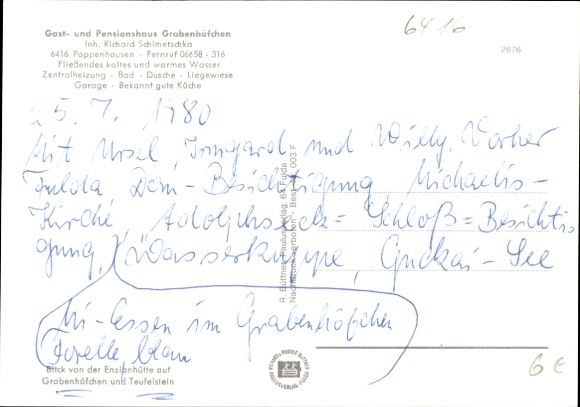 6416
Gast- und Pensionshaus Grabenhöfchen
Inh. Richard Schimetschka
6416 Poppenhausen · Fernruf 06658 - 316
Fließendes kaltes und warmes Wasser
Zentralheizung · Bad · Dusche · Liegewiese
Garage · Bekannt gute Küche
2676
25. 7. 1980
Mit Ursel, Irmgard und Willy. Vorher
Fulda Dom-Besichtigung Michaelis-
Kirche, Adolphseck= Schloß=Besichti
gung, Wasserkuppe, Guckai-See
Mi-Essen im Grabenhöfchen
Forelle blau
Blick von der Enzianhütte auf
Grabenhöfchen und Teufelstein
R. Büttner, Paulusverlag, 64 Fulda
6 €